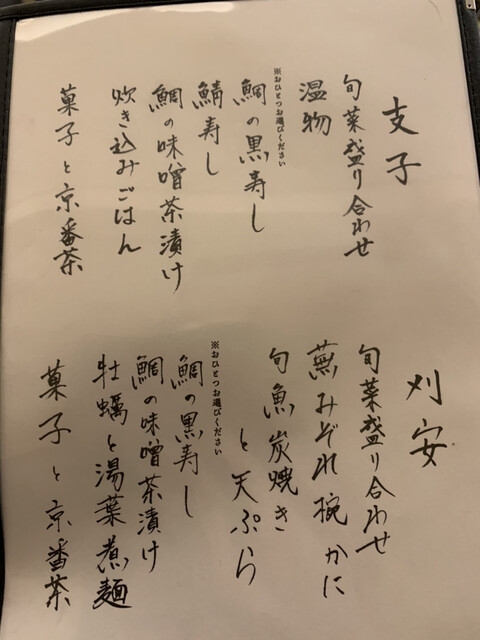 支子
旬菜盛り合わせ
温物
※おひとつお選びください
鯛の黒寿し
鯖寿し
鯛の味噌茶漬け
炊き込みごはん
菓子と京番茶
刈安
旬菜盛り合わせ
蕪みぞれ椀 かに
旬魚炭焼き
と天ぷら
※おひとつお選びください
鯛の黒寿し
鯛の味噌茶漬け
牡蠣と湯葉煮麺
菓子と京番茶